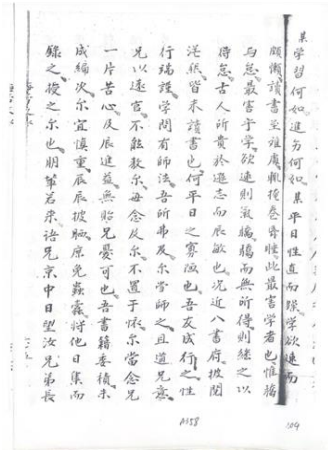 某學習何如進另何如某平日性直而躁学欲速而
頗懶讀書至誰處輒掩卷脊睡此最害学者也惟躁
与怠最害于学欲速則氣驕驕而無所得則継之以
得怠古人所貴於遜志而辰敏也况近八書府披閱
滿紙皆未讀書也何平日之寡陋也吾友成行之性
行端謹学問有師法吾所弗及尔當師之且道兄意
兄以遠宦不能教尔毎念及尔不置于懷尔當念兄
一片苦心及辰進益無貽兄憂可也吾書籍委積未
成編次尔宜慎重辰辰披晒庶免蟲蠹將他日集而
錄之後之尔也朋輩若来語兄京中日望汝兄弟長
A358
109